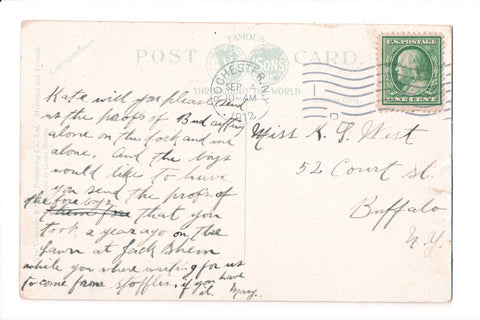 FAMOUS
POST CARD.
SONS
THROUGHOUT THE WORLD
Correspondence
ROCHESTER, N.Y.
SEP 4
AM
1912
U.S. POSTAGE
ONE CENT
Kate will you please send
us the proofs of Bud
alone on the dock and me
alone. And the boys
would like to have
you send the proofs of
the four boys
that you
took a year ago on the
lawn at Jack Shem
while you where waiting for us
to come from Stofflers, if you have
it. Mary.
Miss K. G. West
52 Court St.
Buffalo
N.Y.